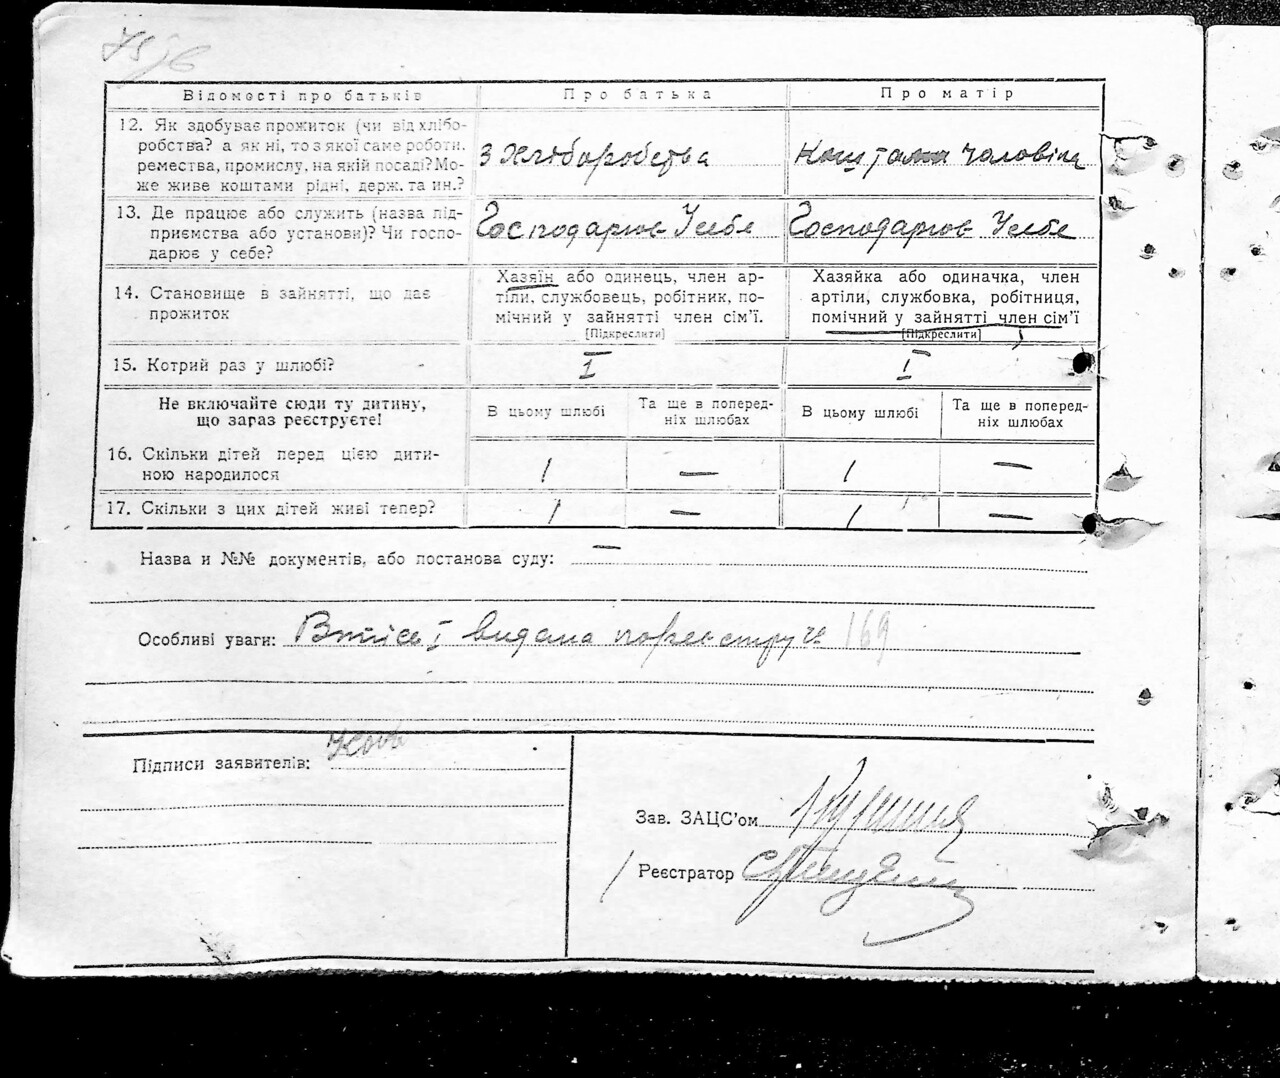 Відомості про батьків Про батька Про матір
12. Як здобуває прожиток (чи від хлібо-
робства? а як ні, то з якої саме роботи,
ремества, промислу, на якій посаді? Мо-
же живе коштами рідні, держ. та ин.?
з Хліборобства
Коштами чоловіка
13. Де працює або служить (назва під-
приємства або установи)? Чи госпо-
дарює у себе?
Господарює У себе
Господарює У себе
14. Становище в зайнятті, що дає
прожиток
Хазяїн або одинець, член ар-
тіли, службовець, робітник, по-
мічний у зайнятті член сім'ї.
[Підкреслити]
Хазяйка або одиначка, член
артіли, службовка, робітниця,
помічний у зайнятті член сім'ї
[Підкреслити]
15. Котрий раз у шлюбі? I I
Не включайте сюди ту дитину,
що зараз реєструєте!
В цьому шлюбі
Та ще в поперед-
ніх шлюбах
В цьому шлюбі
Та ще в поперед-
ніх шлюбах
16. Скільки дітей перед цією дити-
ною народилося
1 — 1 —
17. Скільки з цих дітей живі тепер? 1 — 1 —
Назва и №№ документів, або постанова суду: —
Особливі уваги: видана 169
Підписи заявителів:
Зав. ЗАЦС'ом
Реєстратор